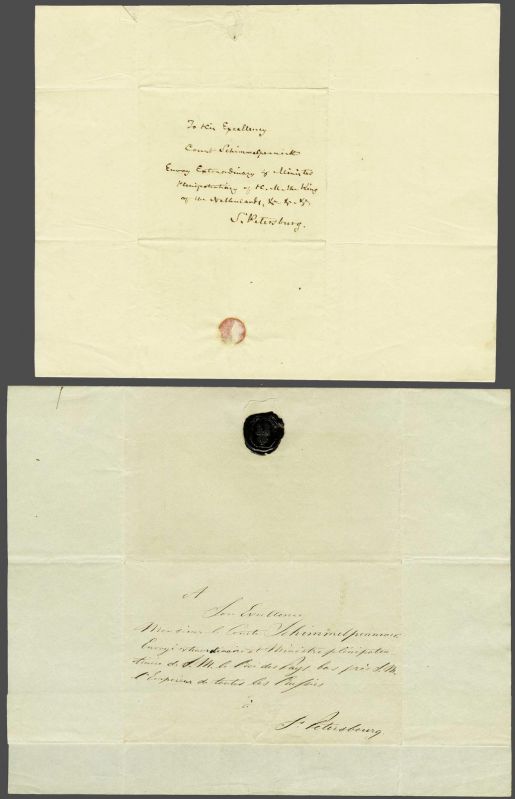 To His Excellency
Count Schimmelpennick
Envoy Extraordinary & Minister
Plenipotentiary of H. M. the King
of the Netherlands, &c. &c. &c.
St Petersburg.
A
Son Excellence
Monsieur le Comte Schimmelpennick
Envoyé extraordinaire et Ministre plénipoten-
tiaire de S. M. le Roi des Pays bas près S. M.
l'Empereur de toutes les Russies
à
St Petersbourg